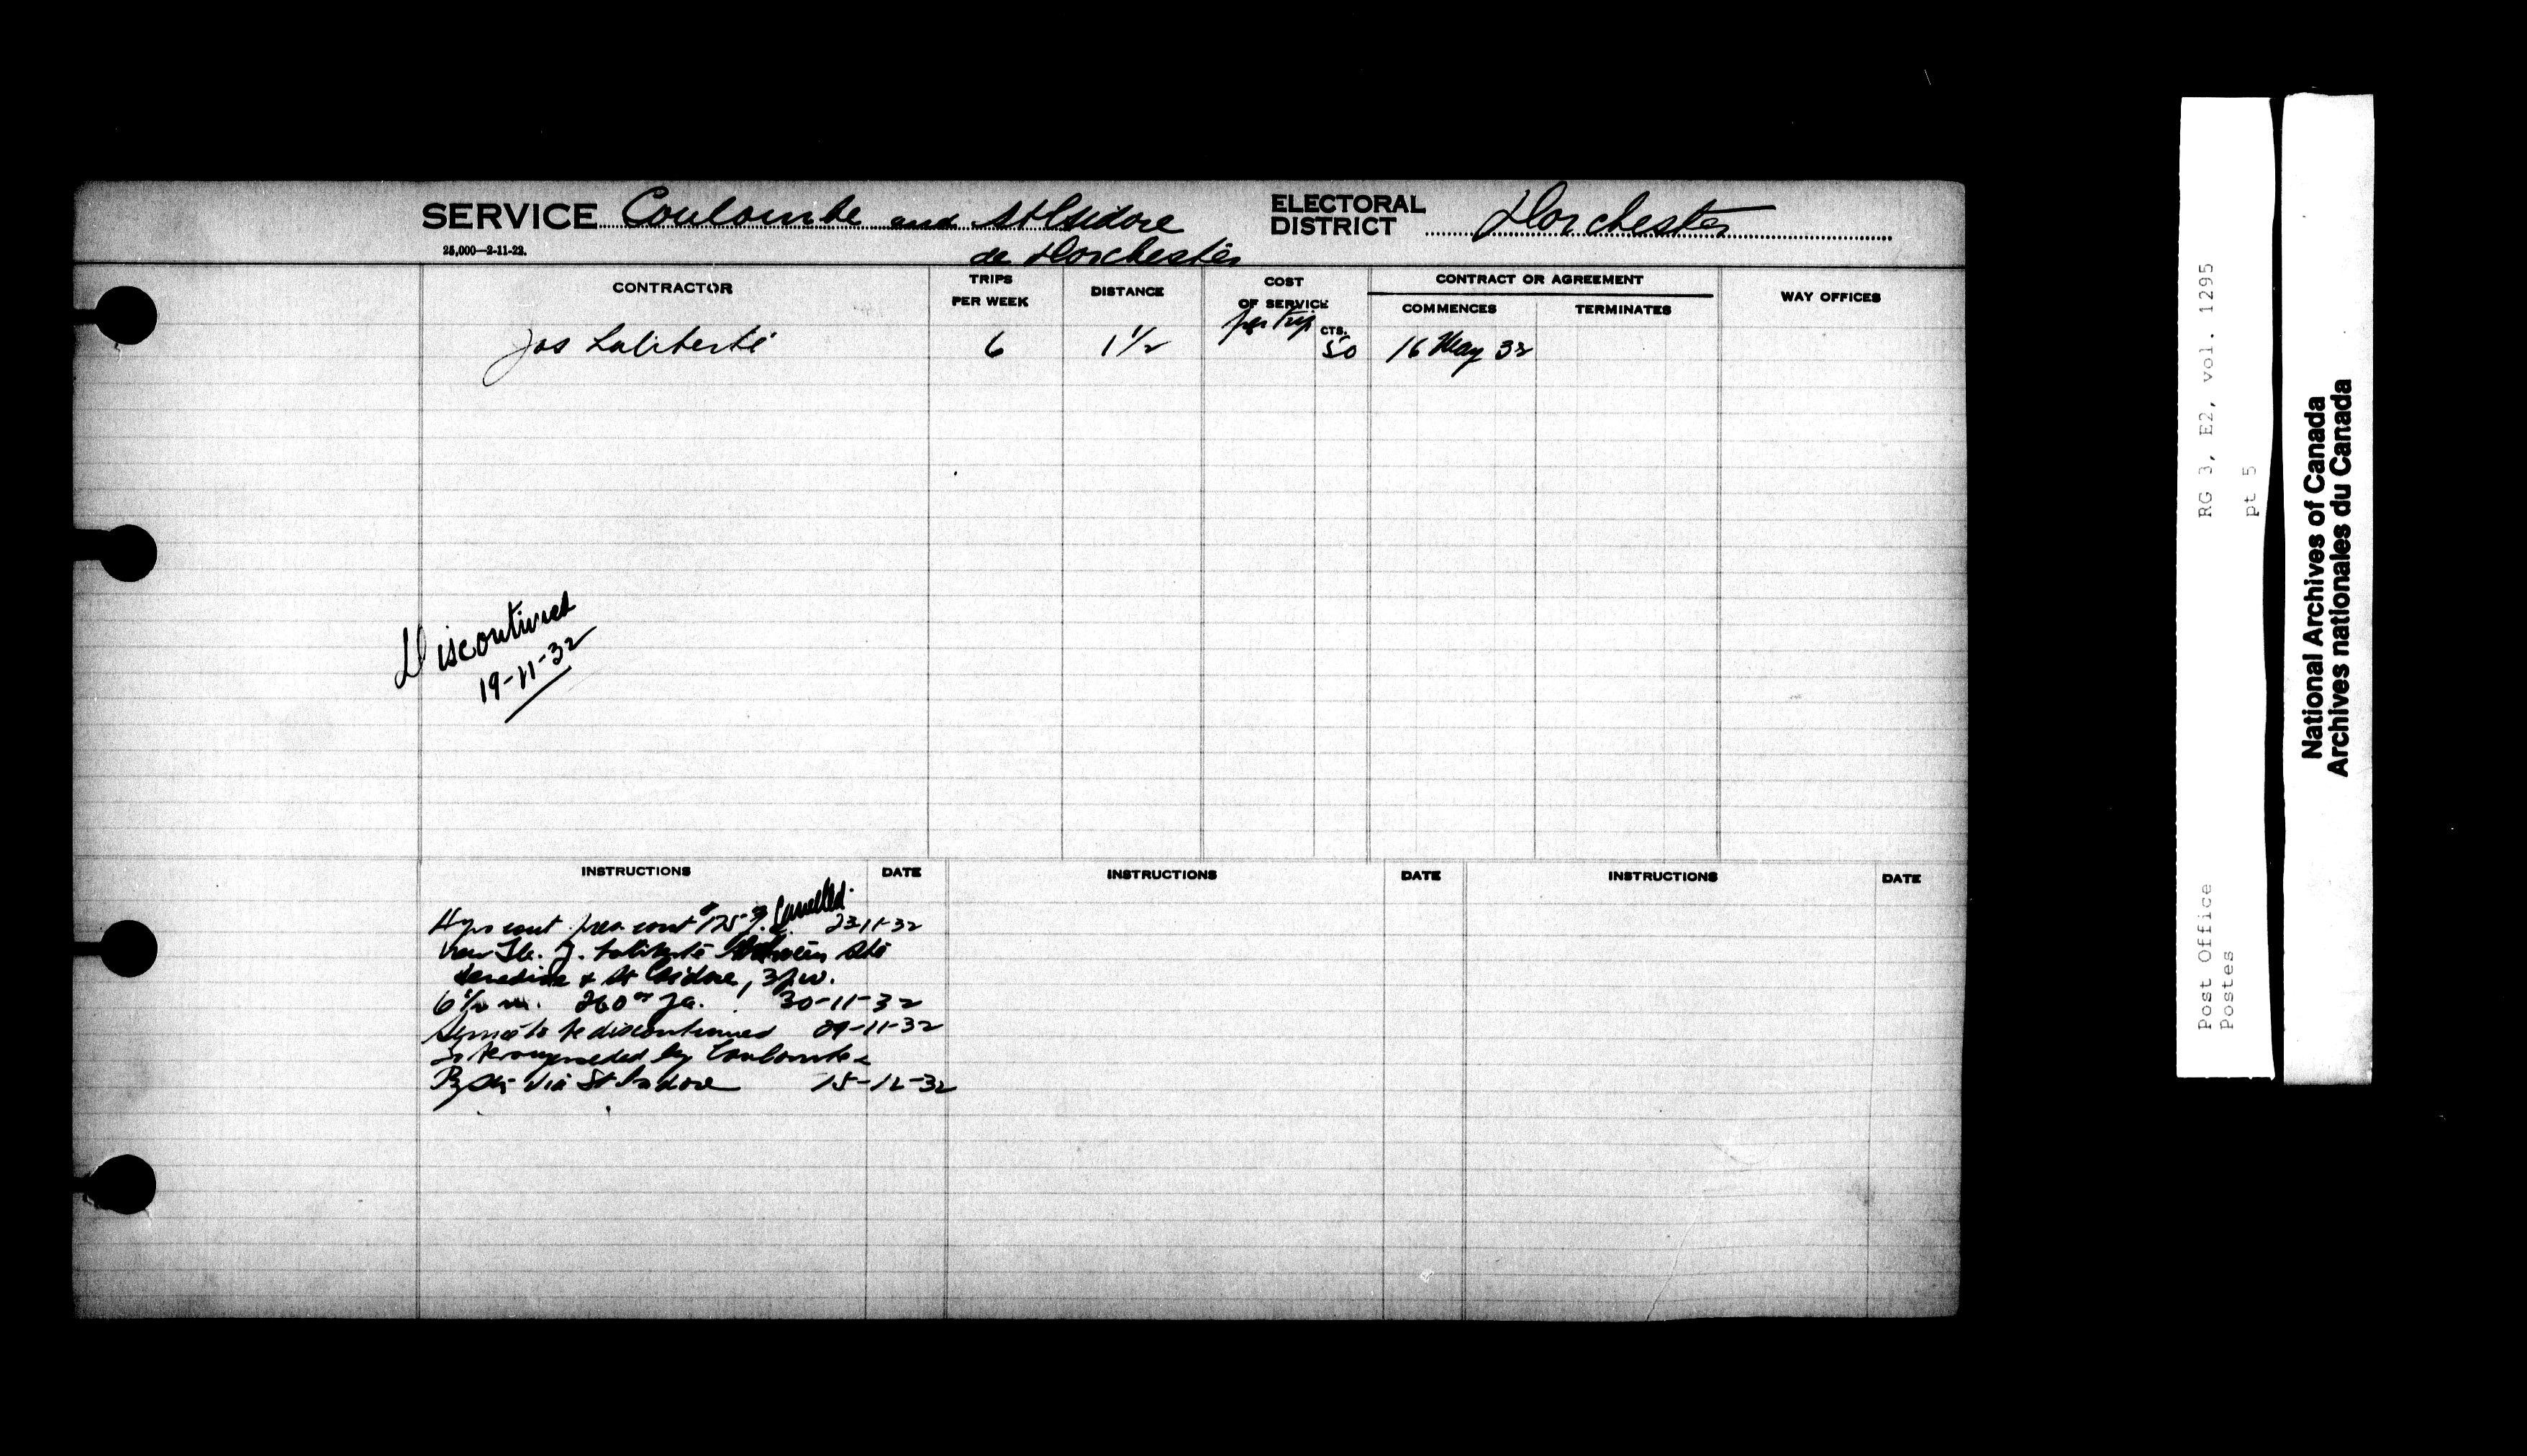 SERVICE Coulombe and St Isidore
de Dorchester
ELECTORAL
DISTRICT Dorchester
25,000—2-11-22.
CONTRACTOR
TRIPS
PER WEEK
DISTANCE
COST
OF SERVICE
per trip
CTS.
CONTRACT OR AGREEMENT
COMMENCES
TERMINATES
WAY OFFICES
Jos Laliberté 6 1 1/2 50 16 May 32
Discontinued
19-11-32
INSTRUCTIONS DATE INSTRUCTIONS DATE INSTRUCTIONS DATE
cont cont 175 Cancelled 23-11-32
J. Laliberté between Ste
& St Isidore, 3 p.w.
6 1/2 m. 260 00 30-11-32
Service to be discontinued 29-11-32
To be superseded by Coulombe &
Ry Stn via St Isidore 15-12-32
RG 3, E2, vol. 1295
pt 5
Post Office
Postes
National Archives of Canada
Archives nationales du Canada